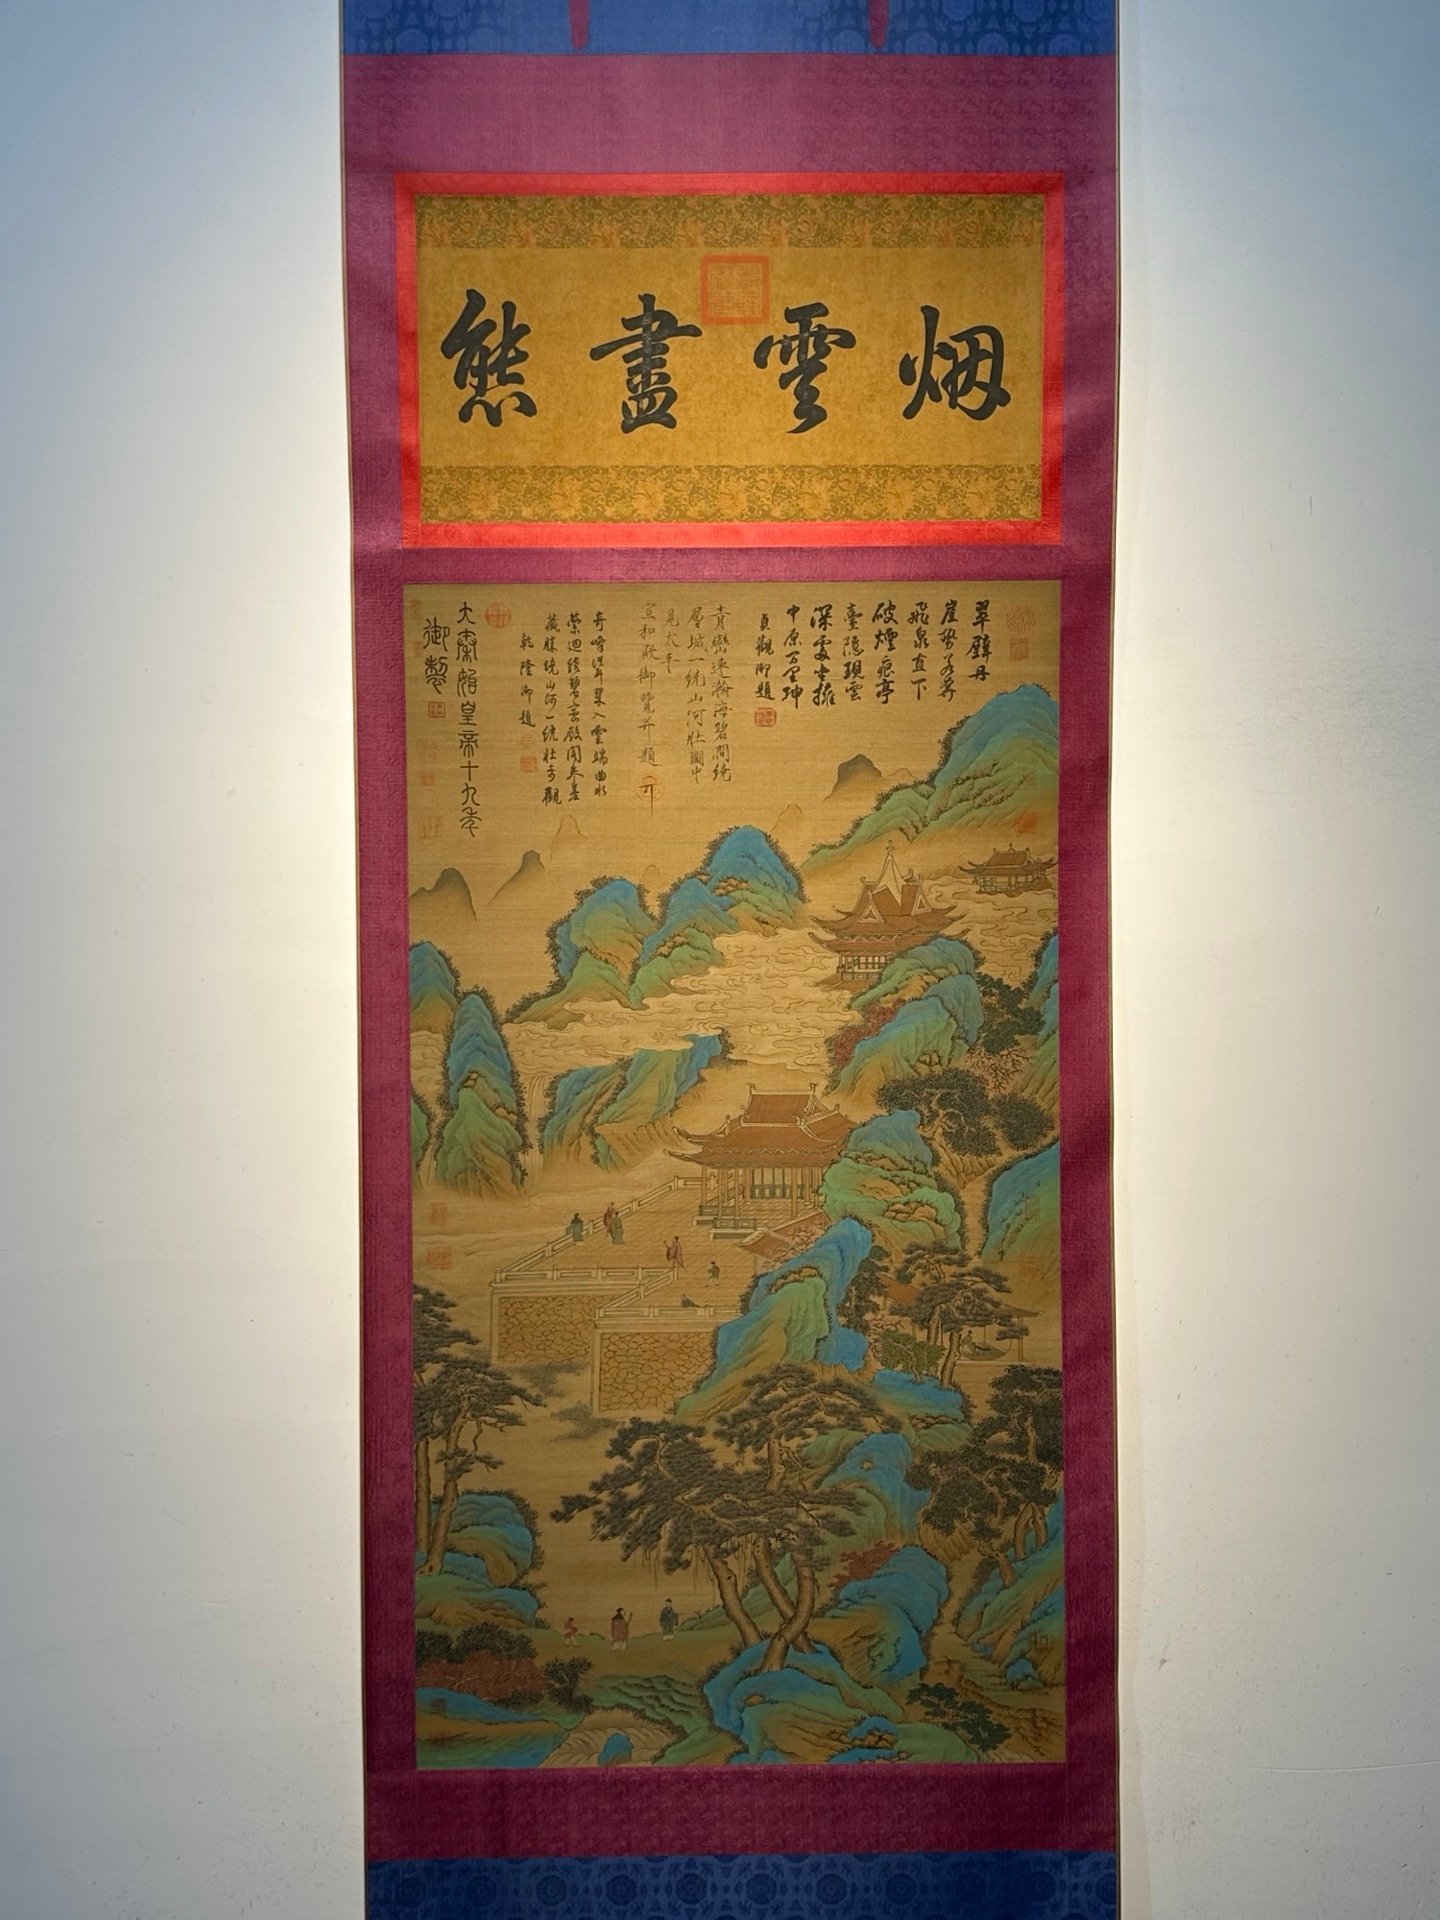 烟雲盡態
翠壁丹
崖勢若奔
飛泉直下
破煙痕亭
臺隱現雲
深處坐擁
中原萬里坤
貞觀御題
青巒遠瀚海碧澗繞
層城一統山河壯圖中
見太平
宣和殿御覽并題
奇峰聳翠入雲端曲水
縈迴繞碧
藏勝境山河一統壯奇觀
乾隆御題
大秦始皇帝十九年
御製